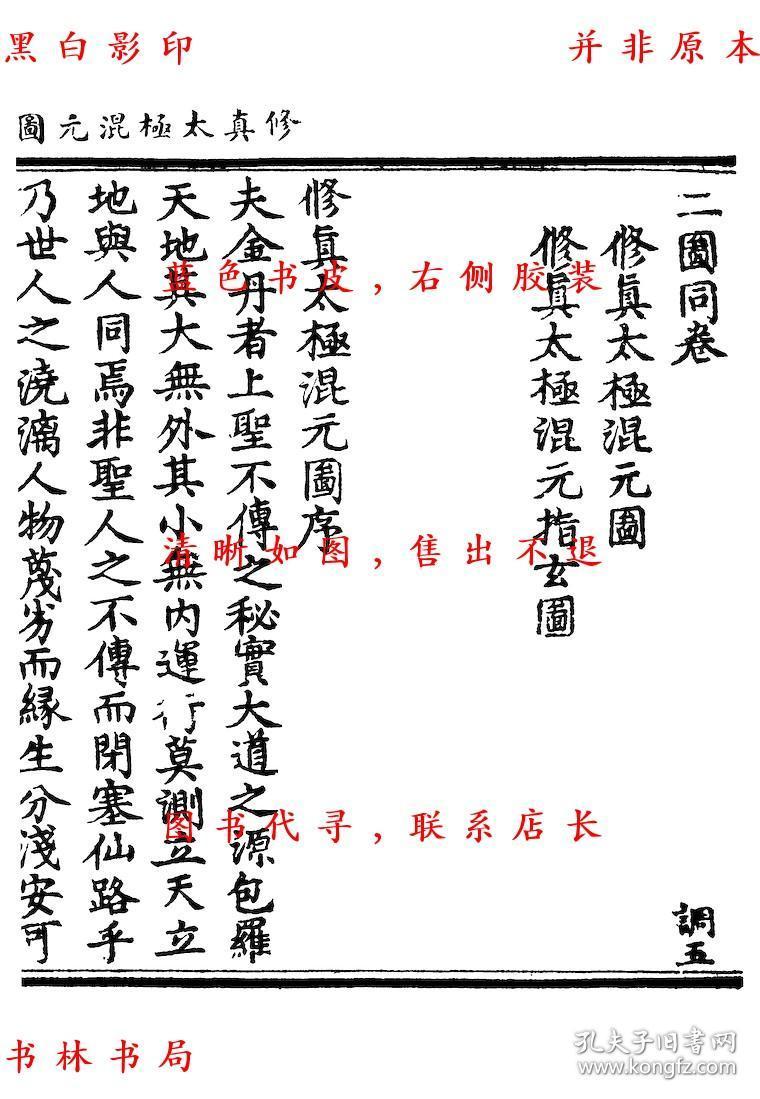 黑白影印
并非原本
修真太極混元圖
二圖同卷
調五
修眞太極混元圖
修眞太極混元指玄圖
修眞太極混元圖序
夫金丹者上聖不傳之秘實大道之源包羅
天地其大無外其小無內運行莫測立天立
地與人同焉非聖人之不傳而閉塞仙路乎
乃世人之澆漓人物蔑劣而緣生分淺安可
蓝色书皮，右侧胶装
清晰如图，售出不退
图书代寻，联系店长
书林书局
孔夫子旧书网
www.kongfz.com